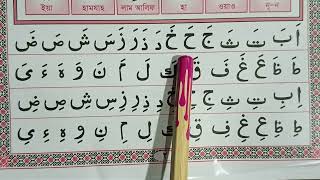 ইয়া হামযাহ লাম আলিফ হা ওয়াও নূ-ন
اَ بَ تَ ثَ جَ حَ خَ دَ ذَ رَ زَ سَ شَ صَ ضَ
طَ ظَ عَ غَ فَ قَ كَ لَ مَ نَ وَ هَ ءَ یَ
اِ بِ تِ ثِ جِ حِ خِ دِ ذِ رِ زِ سِ شِ صِ ضِ
طِ ظِ عِ غِ فِ قِ كِ لِ مِ نِ وِ هِ ءِ یِ